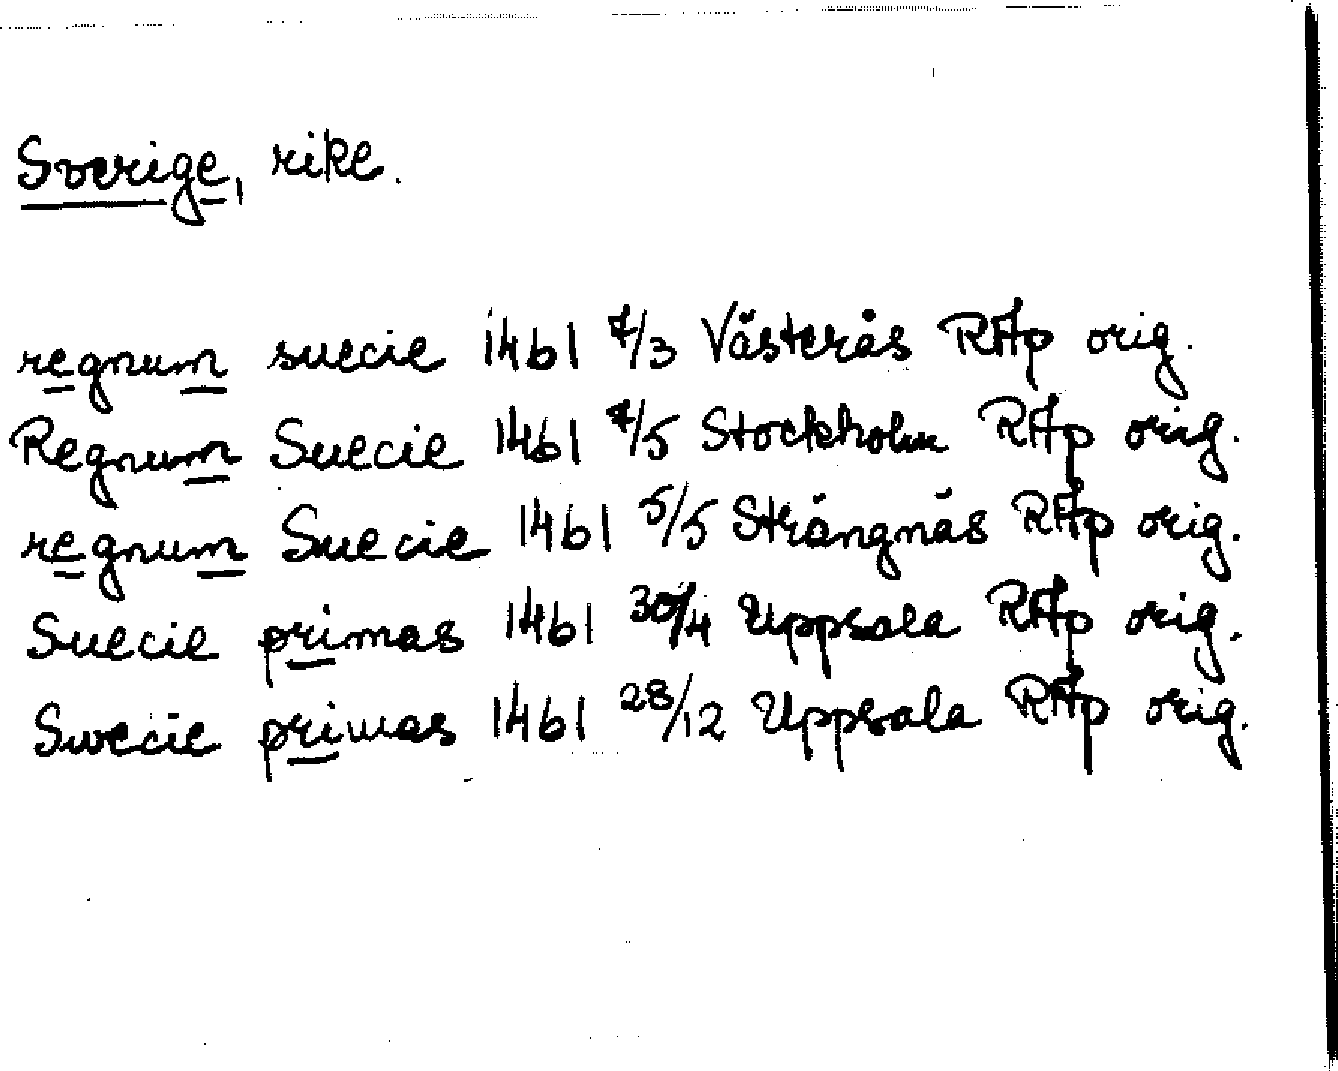 Sverige, rike.
regnum suecie 1461 7/3 Västerås RAp orig.
Regnum Suecie 1461 7/5 Stockholm RAp orig.
regnum Suecie 1461 5/5 Strängnäs RAp orig.
Suecie primas 1461 30/4 Uppsala RAp orig.
Swecie primas 1461 28/12 Uppsala RAp orig.